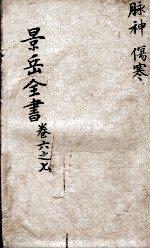 脉神 傷寒
景岳全書
卷六之七